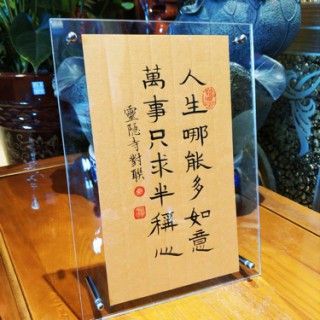 人生哪能多如意
萬事只求半稱心
靈隐寺對联